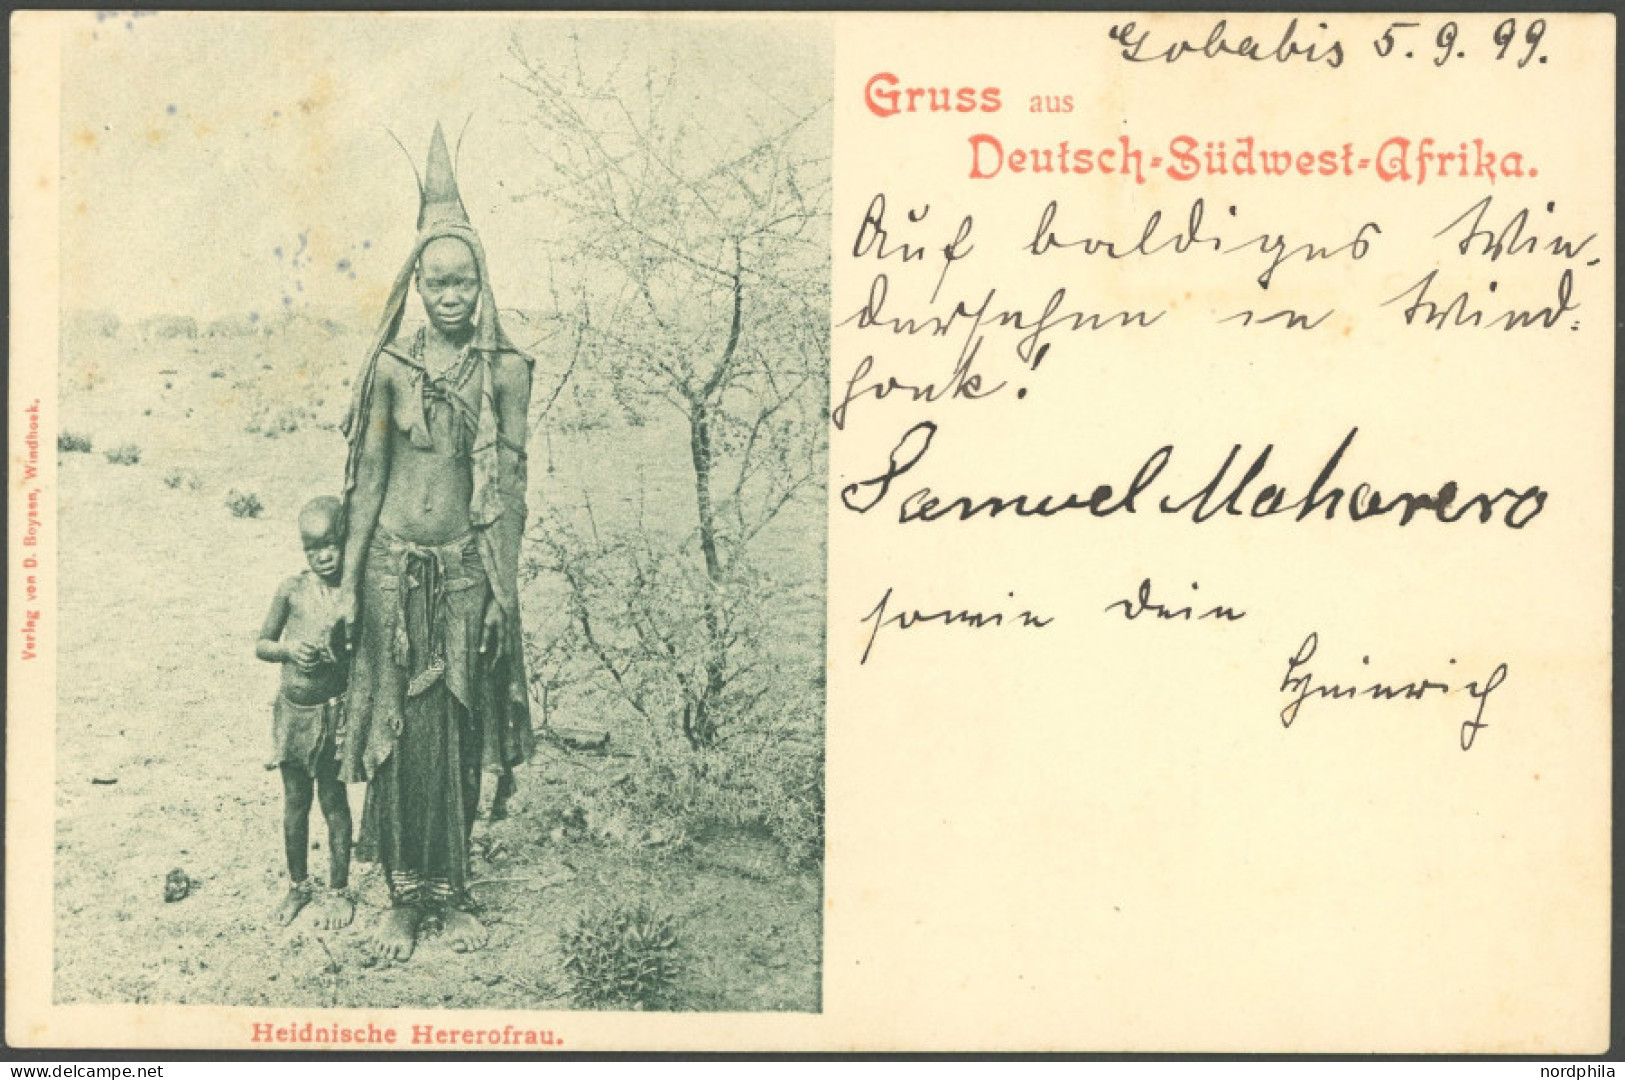 Gobabis 5. 9. 99.
Gruss aus
Deutsch-Südwest-Afrika.
Auf baldiges Wie-
dersehen in Wind-
hoek!
Samuel Maharero
sowie Dein
Heinrich
Verlag von D. Boysen, Windhoek.
Heidnische Hererofrau.
www.delcampe.net
nordphila